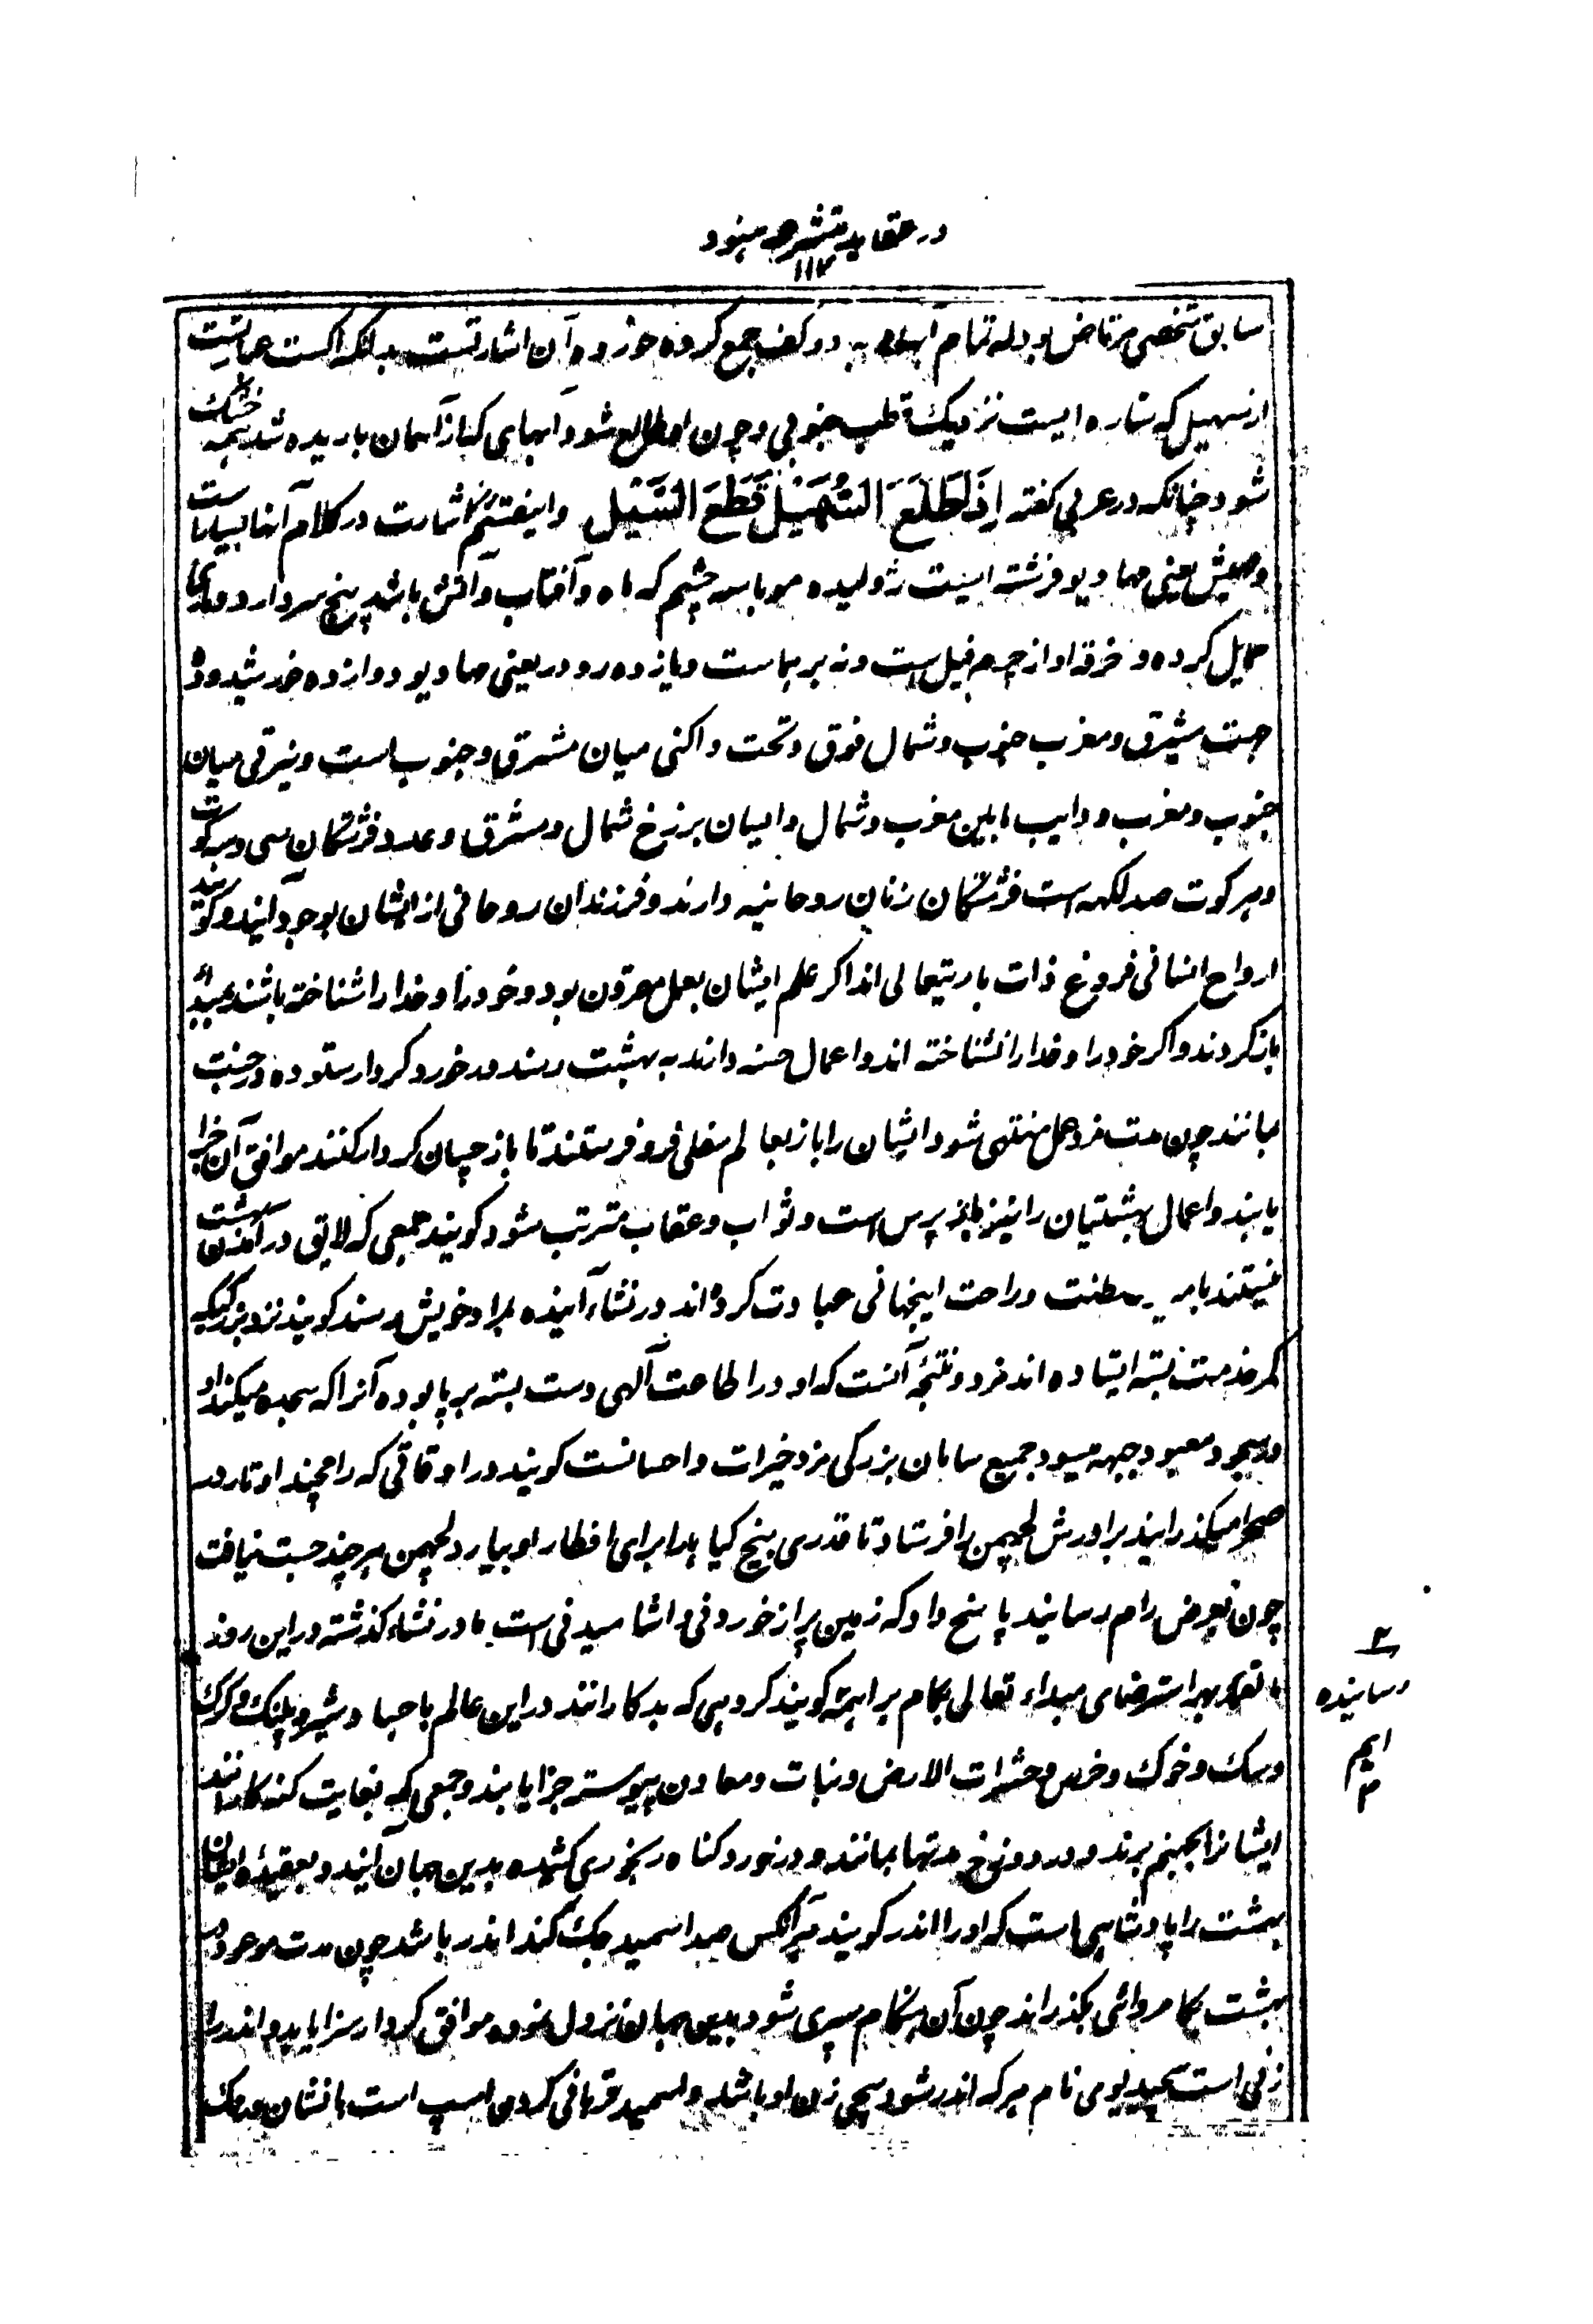 در عقاید متشرعه هنود
١١٧
سابق شخصی مرتاض بوده تمام آبها به دو کف جمع کرده خورده آن اشارتست بدانکه اکست عبارتست
از سهیل که ستاره ایست نزدیک قطب جنوبی و چون او طالع شود آبهای که از آسمان باریده شد همه خشک
شود چنانکه در عربی گفته اِذَا طَلَعَ السُّهَیْلُ قَطَعَ السَّیْل و اینقسم اشارت در کلام آنها بسیار است
و مهیش یعنی مهادیو فرشته ایست ژولیده مو با سه چشم که ماه و آفتاب و آتش باشد پنج سر دارد و مار
حمایل کرده و خرقه او از چرم فیل است و نه برهماست و یازده رودر یعنی مهادیو و دوازده خورشید و ده
جهت مشرق و مغرب جنوب و شمال فوق و تحت و اکنی میان مشرق و جنوب است و نیرتی میان
جنوب و مغرب و وایب مابین مغرب و شمال و ایسان برزخ شمال و مشرق و عدد فرشتگان سی و سه کوت
و هر کوت صد لکهه است فرشتگان زنان روحانیه دارند و فرزندان روحانی از ایشان بوجود آیند و گویند
ارواح انسانی فروغ ذات باریتعالی اند اگر علم ایشان بعمل مقرون بود و خود را و خدا را شناخته باشند بمبداء
بازگردند و اگر خود را و خدا را نشناخته اند و اعمال حسنه دارند به بهشت رسند و در خورد کردار ستوده در جنت
بمانند چون مدت مزد عمل منتهی شود ایشان را باز بعالم سفلی فرو فرستند تا باز چسان کردار کنند موافق آن جزا
یابند و اعمال بهشتیان را نیز باز پرس است و ثواب و عقاب مترتب شود گویند جمعی که لایق در آمدن بهشت
نیستند بامید سلطنت و راحت اینجهانی عبادت کرده اند در نشاء آینده بمراد خویش رسند گویند نزد بزرگیکه
کمر خدمت بسته ایستاده اند مزد و نتیجه آنست که او در اطاعت آلهی دست بسته برپا بوده آنرا که سجده میکنند او
در سجود معبود جبهه میسود جمیع سامان بزرگی مزد خیرات و احسانست گویند در اوقاتی که رامچند اوتار در
صحرا میگذرانید برادرش لچهمن را فرستاد تا قدری بیخ گیاه را برای افطار او بیارد لچهمن هر چند جست نیافت
چون بعرض رام رسانید پاسخ داد که زمین پر از خوردنی و آشامیدنی است ما در نشاء گذشته در این روز
بهر استرضای مبداء تعالی بکام براهمه گویند گروهی که بدکارانند در این عالم باجساد شیر و پلنگ و گرگ
وسگ و خوک و خرس و حشرات الارض و نبات و معادن پیوسته جزا یابند و جمعی که بغایت گنه کارانند
ایشانرا بجهنم برند و در دوزخ مدتها بمانند و در خورد گناه رنجوری کشیده بدین جهان آیند و بعقیده ایشان
بهشت را پادشاهی است که او را اندر گویند هر آنکس صد اسمید جک کند اندر باشد چون مدت موعود در
بهشت بکامروائی بگذراند چون آن هنگام سپری شود بدین جهان نزول نموده موافق کردار سزا یابد و اندر را
زنی است سچیدیوی نام هر که اندر شود سچی زن او باشد و اسمید قربانی کردن اسپ است با نشان
رسانیده
ایم